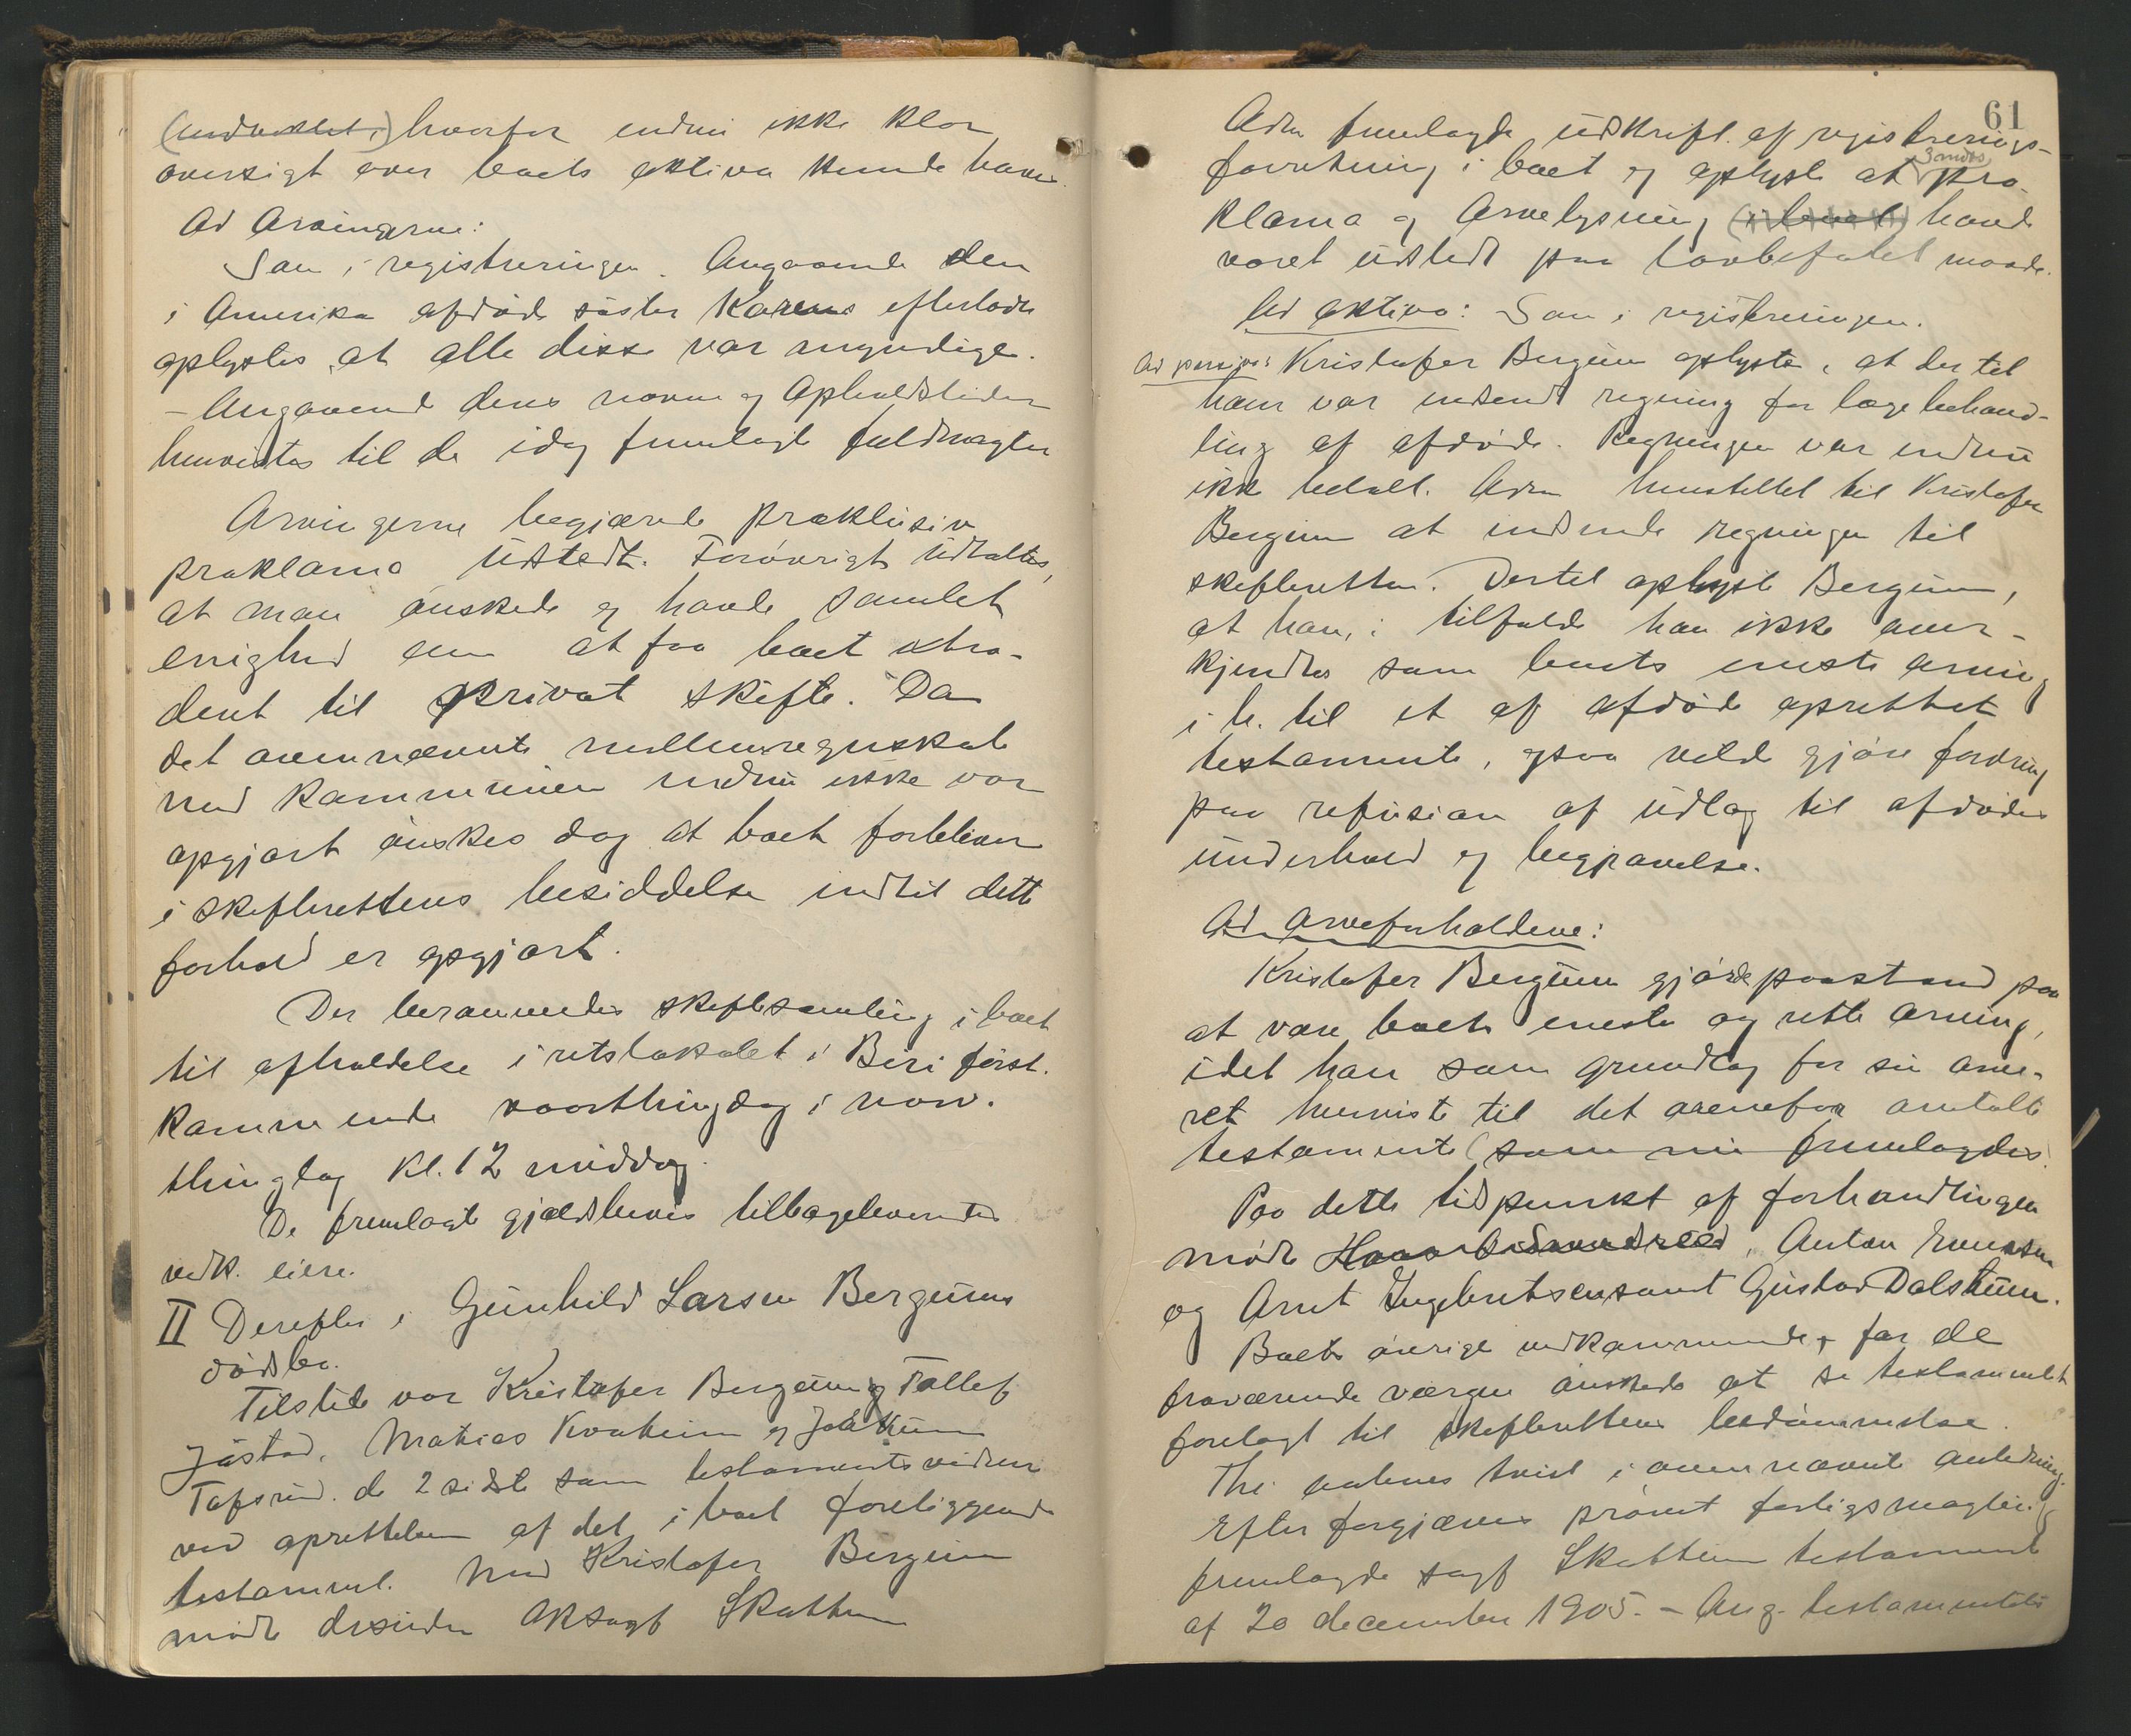 hvorfor endnu ikke klar
oversigt over boets aktiva kunde haves.
Ad Arvingerne:
Som i registreringen. Angaaende den
i Amerika afdøde søster Karens efterladte
oplystes, at alle disse var myndige.
– Angaaende deres navne og Opholdssteder
henvistes til de idag fremlagte fuldmagter
Arvingerne begjærede præklusiv
proklama udstedt. Forøvrigt udtaltes,
at man ønskede og havde samlet
enighed om at faa boet extra-
deret til privat skifte. Da
det ovennævnte mellemregnskab
med kommunen endnu ikke var
opgjort ønskes dog at boet forbliver
i skifterettens besiddelse indtil dette
forhold er opgjort.
Der berammedes skiftesamling i boet
til afholdelse i retslokalet i Biri først-
kommende vaarthingdag i nov.
thinglag kl. 12 middag.
De fremlagte gjældsbevis tilbageleveredes
vedk. eiere.
II Derefter i Gunhild Larsen Bergums
dødsbo.
Tilstede var Kristofer Bergum og Tollef
Jøstad, Matias Kvatum og
de 2 sidste som testamentsvidner
ved oprettelsen af det i boet foreliggende
testament. Med Kristofer Bergum
mødte desuden ORsagf Skattum
61
Adm fremlagde udskrift af registrerings-
forretning i boet og oplyste at 3 mdrs pro-
klama og Arvelysning (i boet) havde
været udstedt paa lovbefalet maade.
Ad aktiva: Som i registreringen.
Ad passiva: Kristofer Bergum oplyste, at der til
ham var indsendt regning for lægebehand-
ling af afdøde. Regningen var endnu
ikke betalt. Adm henstillet til Kristofer
Bergum at indsende regningen til
skifteretten. Dertil oplyste Bergum,
at han, i tilfælde han ikke aner-
kjendtes som boets eneste arving
i h. til et af afdøde oprettet
testamente, ogsaa vilde gjøre fordring
paa refusion af udlæg til afdødes
underhold og begravelse.
Ad arveforholdene:
Kristofer Bergum gjorde paastand paa
at være boets eneste og rette arving,
idet han som grundlag for sin arve-
ret henviste til det ovenfor omtalte
testamente (som nu fremlagdes.
Paa dette tidspunkt af forhandlingen
mødte Anton Evensen
og Arnt Ingebretsen samt Gustav Dalstuen.
Boets øvrige vedkommende, for de
fraværende værgen ønskede at se testamentet
forelagt til skifterettens bedømmelse.
Thi vaktes tvist i ovennævnte anledning.
Efter forgjæves prøvet forligsmægling
fremlagde sagf Skattum testament
af 20 december 1905. – Ang. testamentets